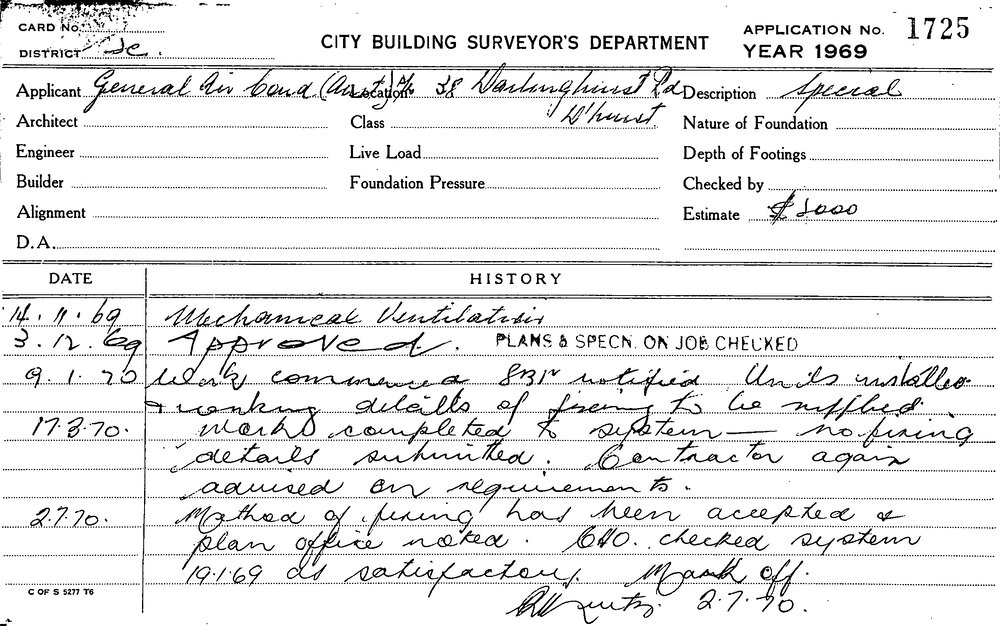 CARD No.
DISTRICT
CITY BUILDING SURVEYOR'S DEPARTMENT
APPLICATION No. 1725
YEAR 1969
Applicant General Air Cond (Aust) Location 38 Darlinghurst Rd Description Special
D'hurst
Architect Class Nature of Foundation
Engineer Live Load Depth of Footings
Builder Foundation Pressure Checked by
Alignment Estimate $ 2000
D.A.
DATE HISTORY
14.11.69 Mechanical Ventilation
3.12.69 Approved. PLANS & SPECN. ON JOB CHECKED
9.1.70 Work commenced notified Units installed
& working details of fixing to be supplied.
17.3.70. Works completed to system — no fixing
details submitted. Contractor again
advised on requirements.
2.7.70. Method of fixing has been accepted &
plan office noted. CHO. checked system
19.1.69 as satisfactory. Mark off.
2.7.70.
C OF S 5277 T6